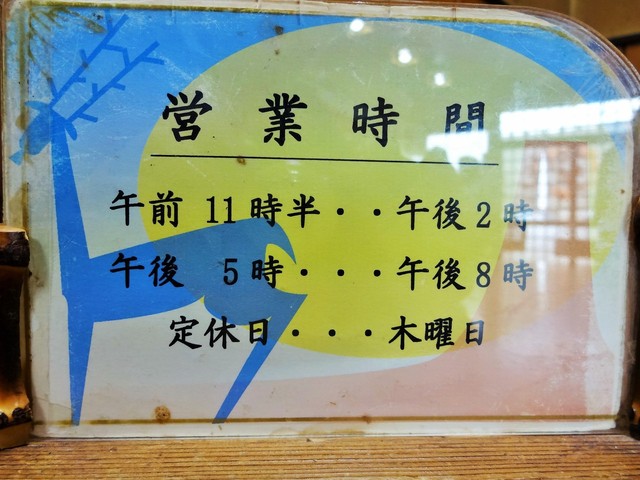 営業時間
午前 11時半・・午後2時
午後 5時・・・午後8時
定休日・・・木曜日